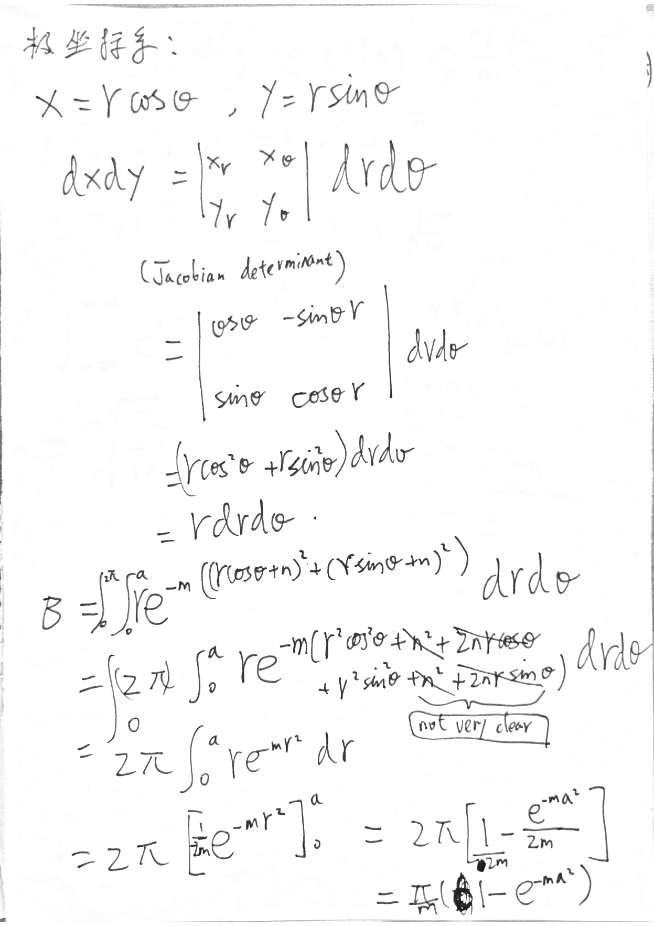 极坐标系：
x = r cosθ , y = r sinθ
dxdy = |x_r x_θ; y_r y_θ| drdθ
(Jacobian determinant)
= |cosθ -sinθ r; sinθ cosθ r| drdθ
= (r cos²θ + r sin²θ) drdθ
= r drdθ .
B = ∫₀^{2π} ∫₀^a re^{-m((r cosθ+n)² + (r sinθ+n)²)} drdθ
= ∫₀^{2π} ∫₀^a re^{-m(r²cos²θ + n² + 2nr cosθ + r²sin²θ + n² + 2nr sinθ)} drdθ
not very clear
= 2π ∫₀^a re^{-mr²} dr
= 2π [1/2m e^{-mr²}]₀^a = 2π [1/2m - e^{-ma²}/2m]
= π/m (1 - e^{-ma²})